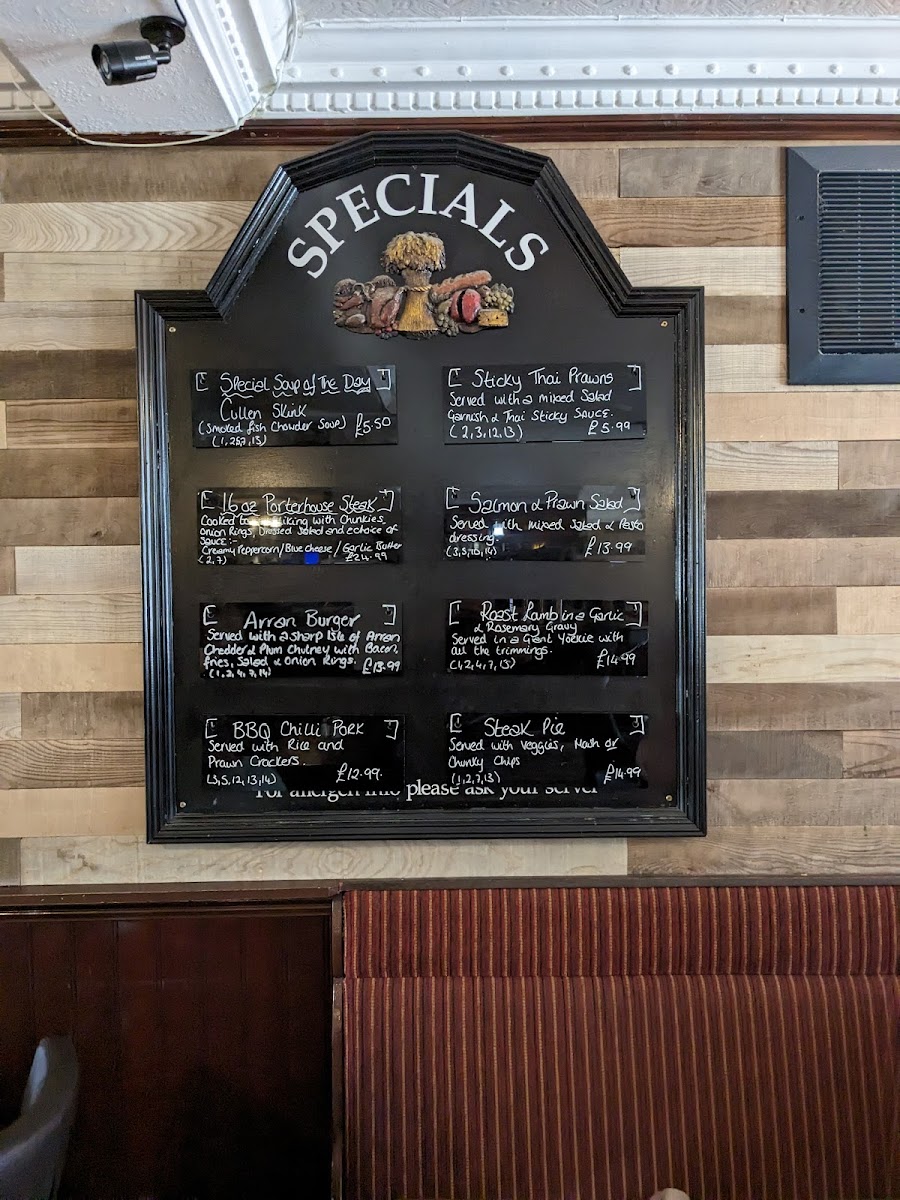 SPECIALS
Special Soup of The Day
Cullen Skink
(Smoked fish Chowder Soup) £5.50
16oz Porterhouse Steak
Cooked to liking with Chunkies,
Onion Rings, Dressed Salad and a choice of
Sauce:-
Creamy Peppercorn/Blue Cheese/Garlic Butter
(2,7) £24.99
Arran Burger
Served with a sharp Isle of Arran
Chedder & Plum Chutney with Bacon,
fries, Salad & Onion Rings.
(1,2,4,7,14) £13.99
BBQ Chilli Pork
Served with Rice and
Prawn Crackers.
£12.99.
Sticky Thai Prawns
Served with a mixed Salad
Garnish & Thai Sticky Sauce.
(2,3,12,13) £5.99
Salmon & Prawn Salad
Served with mixed Salad & Pesto
dressing.
£13.99
Roast Lamb in a Garlic
& Rosemary Gravy
Served in a Giant Yorkie with
all the trimmings.
(1,2,4,7,13) £14.99
Steak Pie
Served with Veggies, Mash or
Chunky Chips
(1,2,7,13) £14.99
For allergen info please ask your server